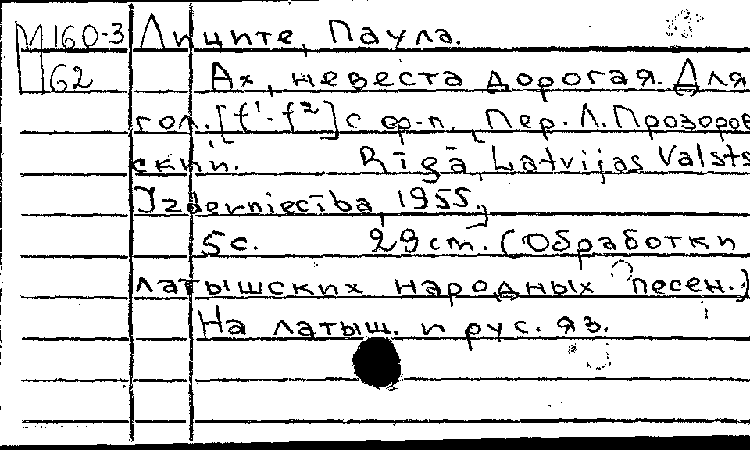 М160-3 Лиците, Паула.
62 Ах, невеста дорогая. Для
гол. [f¹-f²] с ф-п. Пер. Л. Прозоров
ский. Rīgā, Latvijas Valsts
Izdevniecība, 1955.,
5 с. 29 cm. (Обработки
латышских народных песен.)
На латыш. и рус. яз.